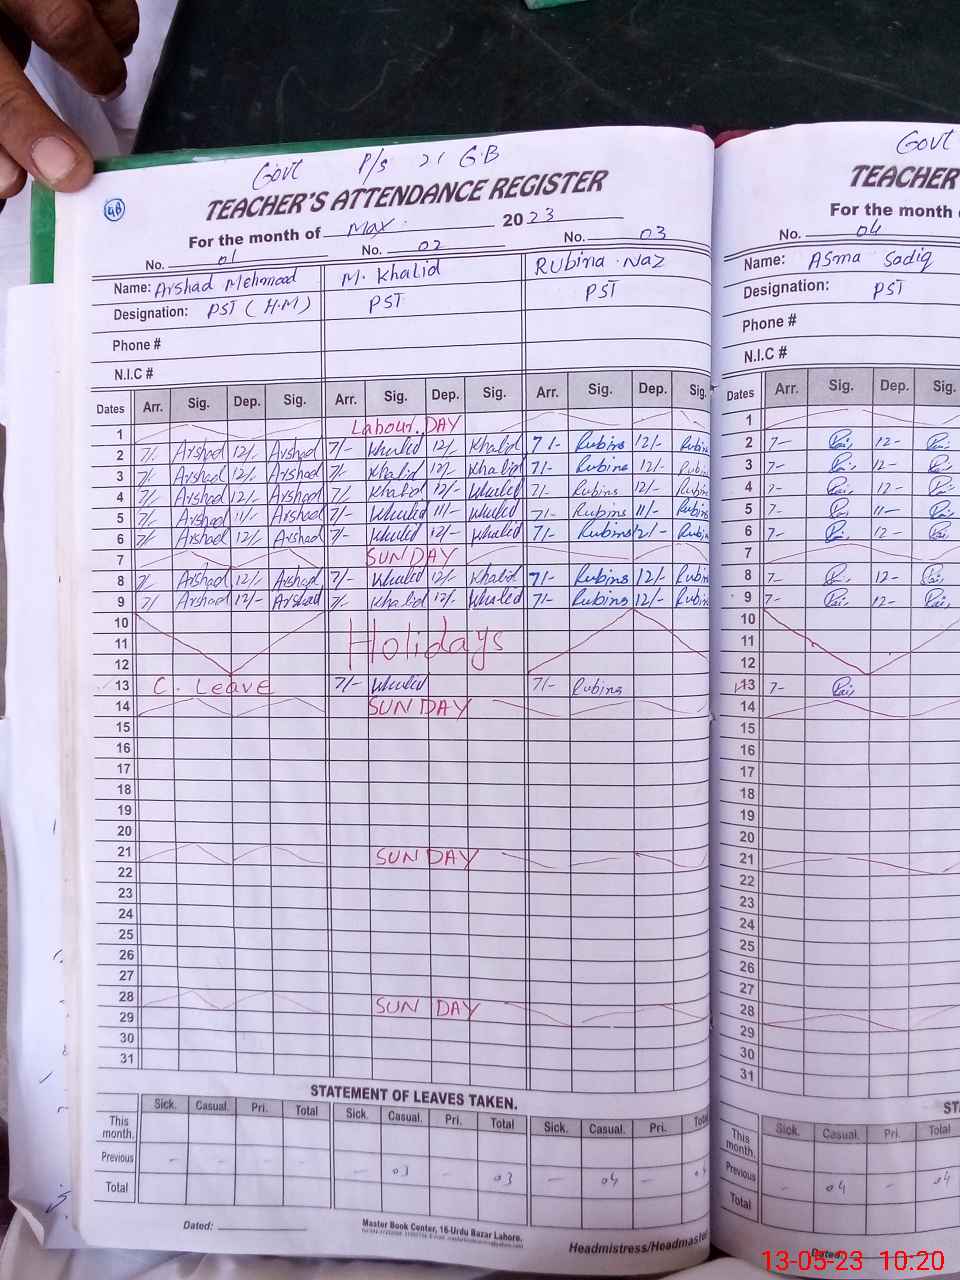 Govt P/s 21 G.B
48
TEACHER'S ATTENDANCE REGISTER
For the month of May 2023
No. 01 No. 02 No. 03
Name: Arshad Mehmood M. Khalid Rubina Naz
Designation: PST (H.M) PST PST
Phone #
N.I.C #
Dates Arr. Sig. Dep. Sig. Arr. Sig. Dep. Sig. Arr. Sig. Dep. Sig.
1 Labour DAY
2 7/- Arshad 12/- Arshad 7/- Khalid 12/- Khalid 7/- Rubina 12/- Rubina
3 7/- Arshad 12/- Arshad 7/- Khalid 12/- Khalid 7/- Rubina 12/- Rubina
4 7/- Arshad 12/- Arshad 7/- Khalid 12/- Khalid 7/- Rubina 12/- Rubina
5 7/- Arshad 11/- Arshad 7/- Khalid 11/- Khalid 7/- Rubina 11/- Rubina
6 7/- Arshad 12/- Arshad 7/- Khalid 12/- Khalid 7/- Rubina 12/- Rubina
7 SUNDAY
8 7/- Arshad 12/- Arshad 7/- Khalid 12/- Khalid 7/- Rubina 12/- Rubina
9 7/- Arshad 12/- Arshad 7/- Khalid 12/- Khalid 7/- Rubina 12/- Rubina
10
11 Holidays
12
13 C. Leave 7/- Khalid 7/- Rubina
14 SUNDAY
15
16
17
18
19
20
21 SUNDAY
22
23
24
25
26
27
28 SUNDAY
29
30
31
STATEMENT OF LEAVES TAKEN.
Sick. Casual. Pri. Total Sick. Casual. Pri. Total Sick. Casual. Pri. Total
This month.
Previous - - - - - 03 - 03 - 04 -
Total
Dated:
Master Book Center, 16-Urdu Bazar Lahore.
Headmistress/Headmaster
Govt
TEACHER
For the month
No. 04
Name: Asma Sadiq
Designation: PST
Phone #
N.I.C #
Dates Arr. Sig. Dep. Sig.
1
2 7- 12-
3 7- 12-
4 7- 12-
5 7- 11-
6 7- 12-
7
8 7- 12-
9 7- 12-
10
11
12
13 7-
14
15
16
17
18
19
20
21
22
23
24
25
26
27
28
29
30
31
ST
Sick. Casual. Pri. Total
This month.
Previous - 04 - 04
Total
Dated:
13-05-23 10:20